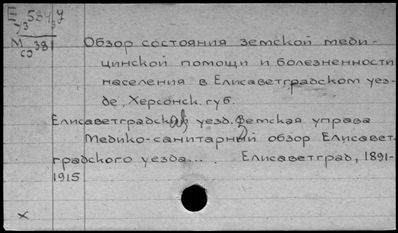 Е 584/7
У3
М 381
с9
Обзор состояния земской меди-
цинской помощи и болезненности
населения в Елисаветградском уез-
де, Херсонск. губ.
Елисаветградская уезд. земская управа
Медико-санитарный обзор Елисавет-
градского уезда... . Елисаветград, 1891-
1915
x